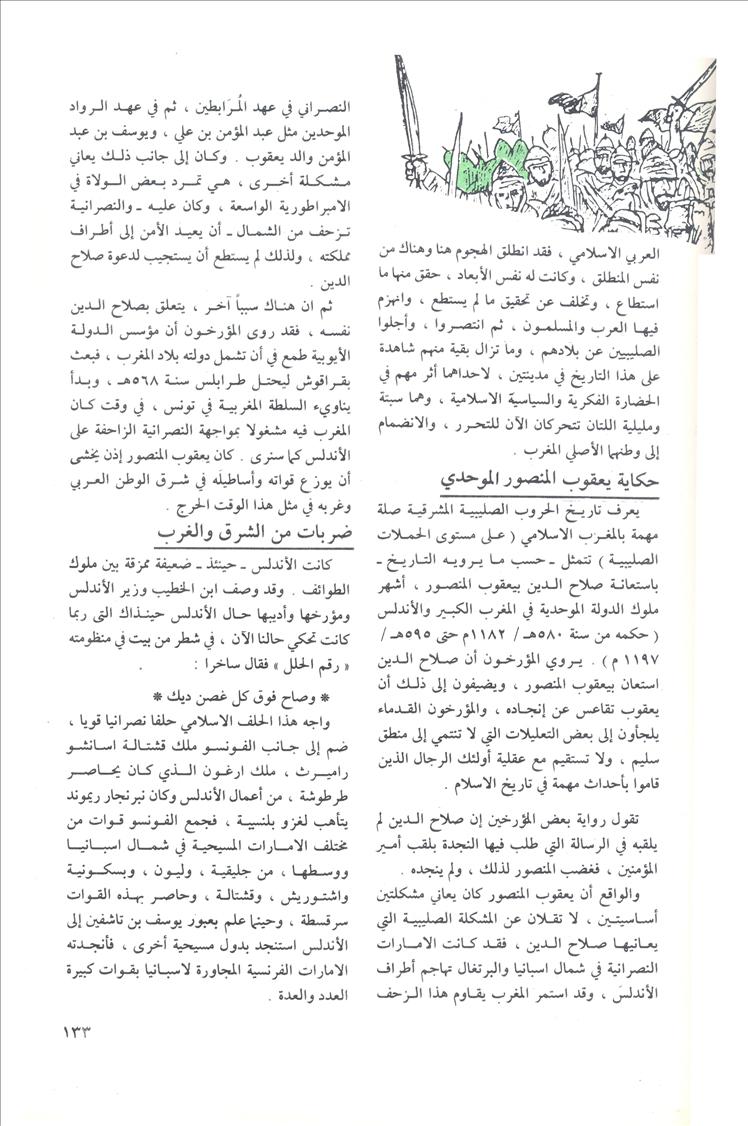 العربي الاسلامي ، فقد انطلق الهجوم هنا وهناك من
نفس المنطلق ، وكانت له نفس الأبعاد ، حقق منها ما
استطاع ، وتخلف عن تحقيق ما لم يستطع ، وانهزم
فيها العرب والمسلمون ، ثم انتصروا ، وأجلوا
الصليبيين عن بلادهم ، وما تزال بقية منهم شاهدة
على هذا التاريخ في مدينتين ، لاحداهما أثر مهم في
الحضارة الفكرية والسياسية الاسلامية ، وهما سبتة
ومليلية اللتان تتحركان الآن للتحرر ، والانضمام
إلى وطنهما الأصلي المغرب .
حكاية يعقوب المنصور الموحدي
يعرف تاريخ الحروب الصليبية المشرقية صلة
مهمة بالمغرب الاسلامي ( على مستوى الحملات
الصليبية ) تتمثل ـ حسب ما يرويه التاريخ ـ
باستعانة صلاح الدين بيعقوب المنصور ، أشهر
ملوك الدولة الموحدية في المغرب الكبير والأندلس
( حكمه من سنة ٥٨٠هـ / ١١٨٢م حتى ٥٩٥هـ /
١١٩٧ م ) . يروي المؤرخون أن صلاح الدين
استعان بيعقوب المنصور ، ويضيفون إلى ذلك أن
يعقوب تقاعس عن إنجاده ، والمؤرخون القدماء
يلجأون إلى بعض التعليلات التي لا تنتمي إلى منطق
سليم ، ولا تستقيم مع عقلية أولئك الرجال الذين
قاموا بأحداث مهمة في تاريخ الاسلام .
تقول رواية بعض المؤرخين إن صلاح الدين لم
يلقبه في الرسالة التي طلب فيها النجدة بلقب أمير
المؤمنين ، فغضب المنصور لذلك ، ولم ينجده .
والواقع أن يعقوب المنصور كان يعاني مشكلتين
أساسيتين ، لا تقلان عن المشكلة الصليبية التي
يعانيها صلاح الدين ، فقد كانت الامارات
النصرانية في شمال اسبانيا والبرتغال تهاجم أطراف
الأندلس ، وقد استمر المغرب يقاوم هذا الزحف
النصراني في عهد المُرَابطين ، ثم في عهد الرواد
الموحدين مثل عبد المؤمن بن علي ، ويوسف بن عبد
المؤمن والد يعقوب . وكان إلى جانب ذلك يعاني
مشكلة أخرى ، هي تمرد بعض الولاة في
الامبراطورية الواسعة ، وكان عليه ـ والنصرانية
تزحف من الشمال ـ أن يعيد الأمن إلى أطراف
مملكته ، ولذلك لم يستطع أن يستجيب لدعوة صلاح
الدين .
ثم ان هناك سبباً آخر ، يتعلق بصلاح الدين
نفسه ، فقد روى المؤرخون أن مؤسس الدولة
الأيوبية طمع في أن تشمل دولته بلاد المغرب ، فبعث
بقراقوش ليحتل طرابلس سنة ٥٦٨هـ ، وبدأ
يناويء السلطة المغربية في تونس ، في وقت كان
المغرب فيه مشغولا بمواجهة النصرانية الزاحفة على
الأندلس كما سنرى . كان يعقوب المنصور إذن يخشى
أن يوزع قواته وأساطيله في شرق الوطن العربي
وغربه في مثل هذا الوقت الحرج .
ضربات من الشرق والغرب
كانت الأندلس ـ حينئذ ـ ضعيفة ممزقة بين ملوك
الطوائف . وقد وصف ابن الخطيب وزير الأندلس
ومؤرخها وأديبها حال الأندلس حينذاك التى ربما
كانت تحكي حالنا الآن ، في شطر من بيت في منظومته
« رقم الحلل » فقال ساخرا :
* وصاح فوق كل غصن ديك *
واجه هذا الحلف الاسلامي حلفا نصرانيا قويا ،
ضم إلى جانب الفونسو ملك قشتالة اسانشو
راميرث ، ملك ارغون الذي كان يحاصر
طرطوشة ، من أعمال الأندلس وكان نبرنجار ريموند
يتأهب لغزو بلنسية ، فجمع الفونسو قوات من
مختلف الامارات المسيحية في شمال اسبانيا
ووسطها ، من جليقية ، وليون ، وبسكونية
واشتوريش ، وقشتالة ، وحاصر بهذه القوات
سرقسطة ، وحينما علم بعبور يوسف بن تاشفين إلى
الأندلس استنجد بدول مسيحية أخرى ، فأنجدته
الامارات الفرنسية المجاورة لاسبانيا بقوات كبيرة
العدد والعدة .
١٣٣